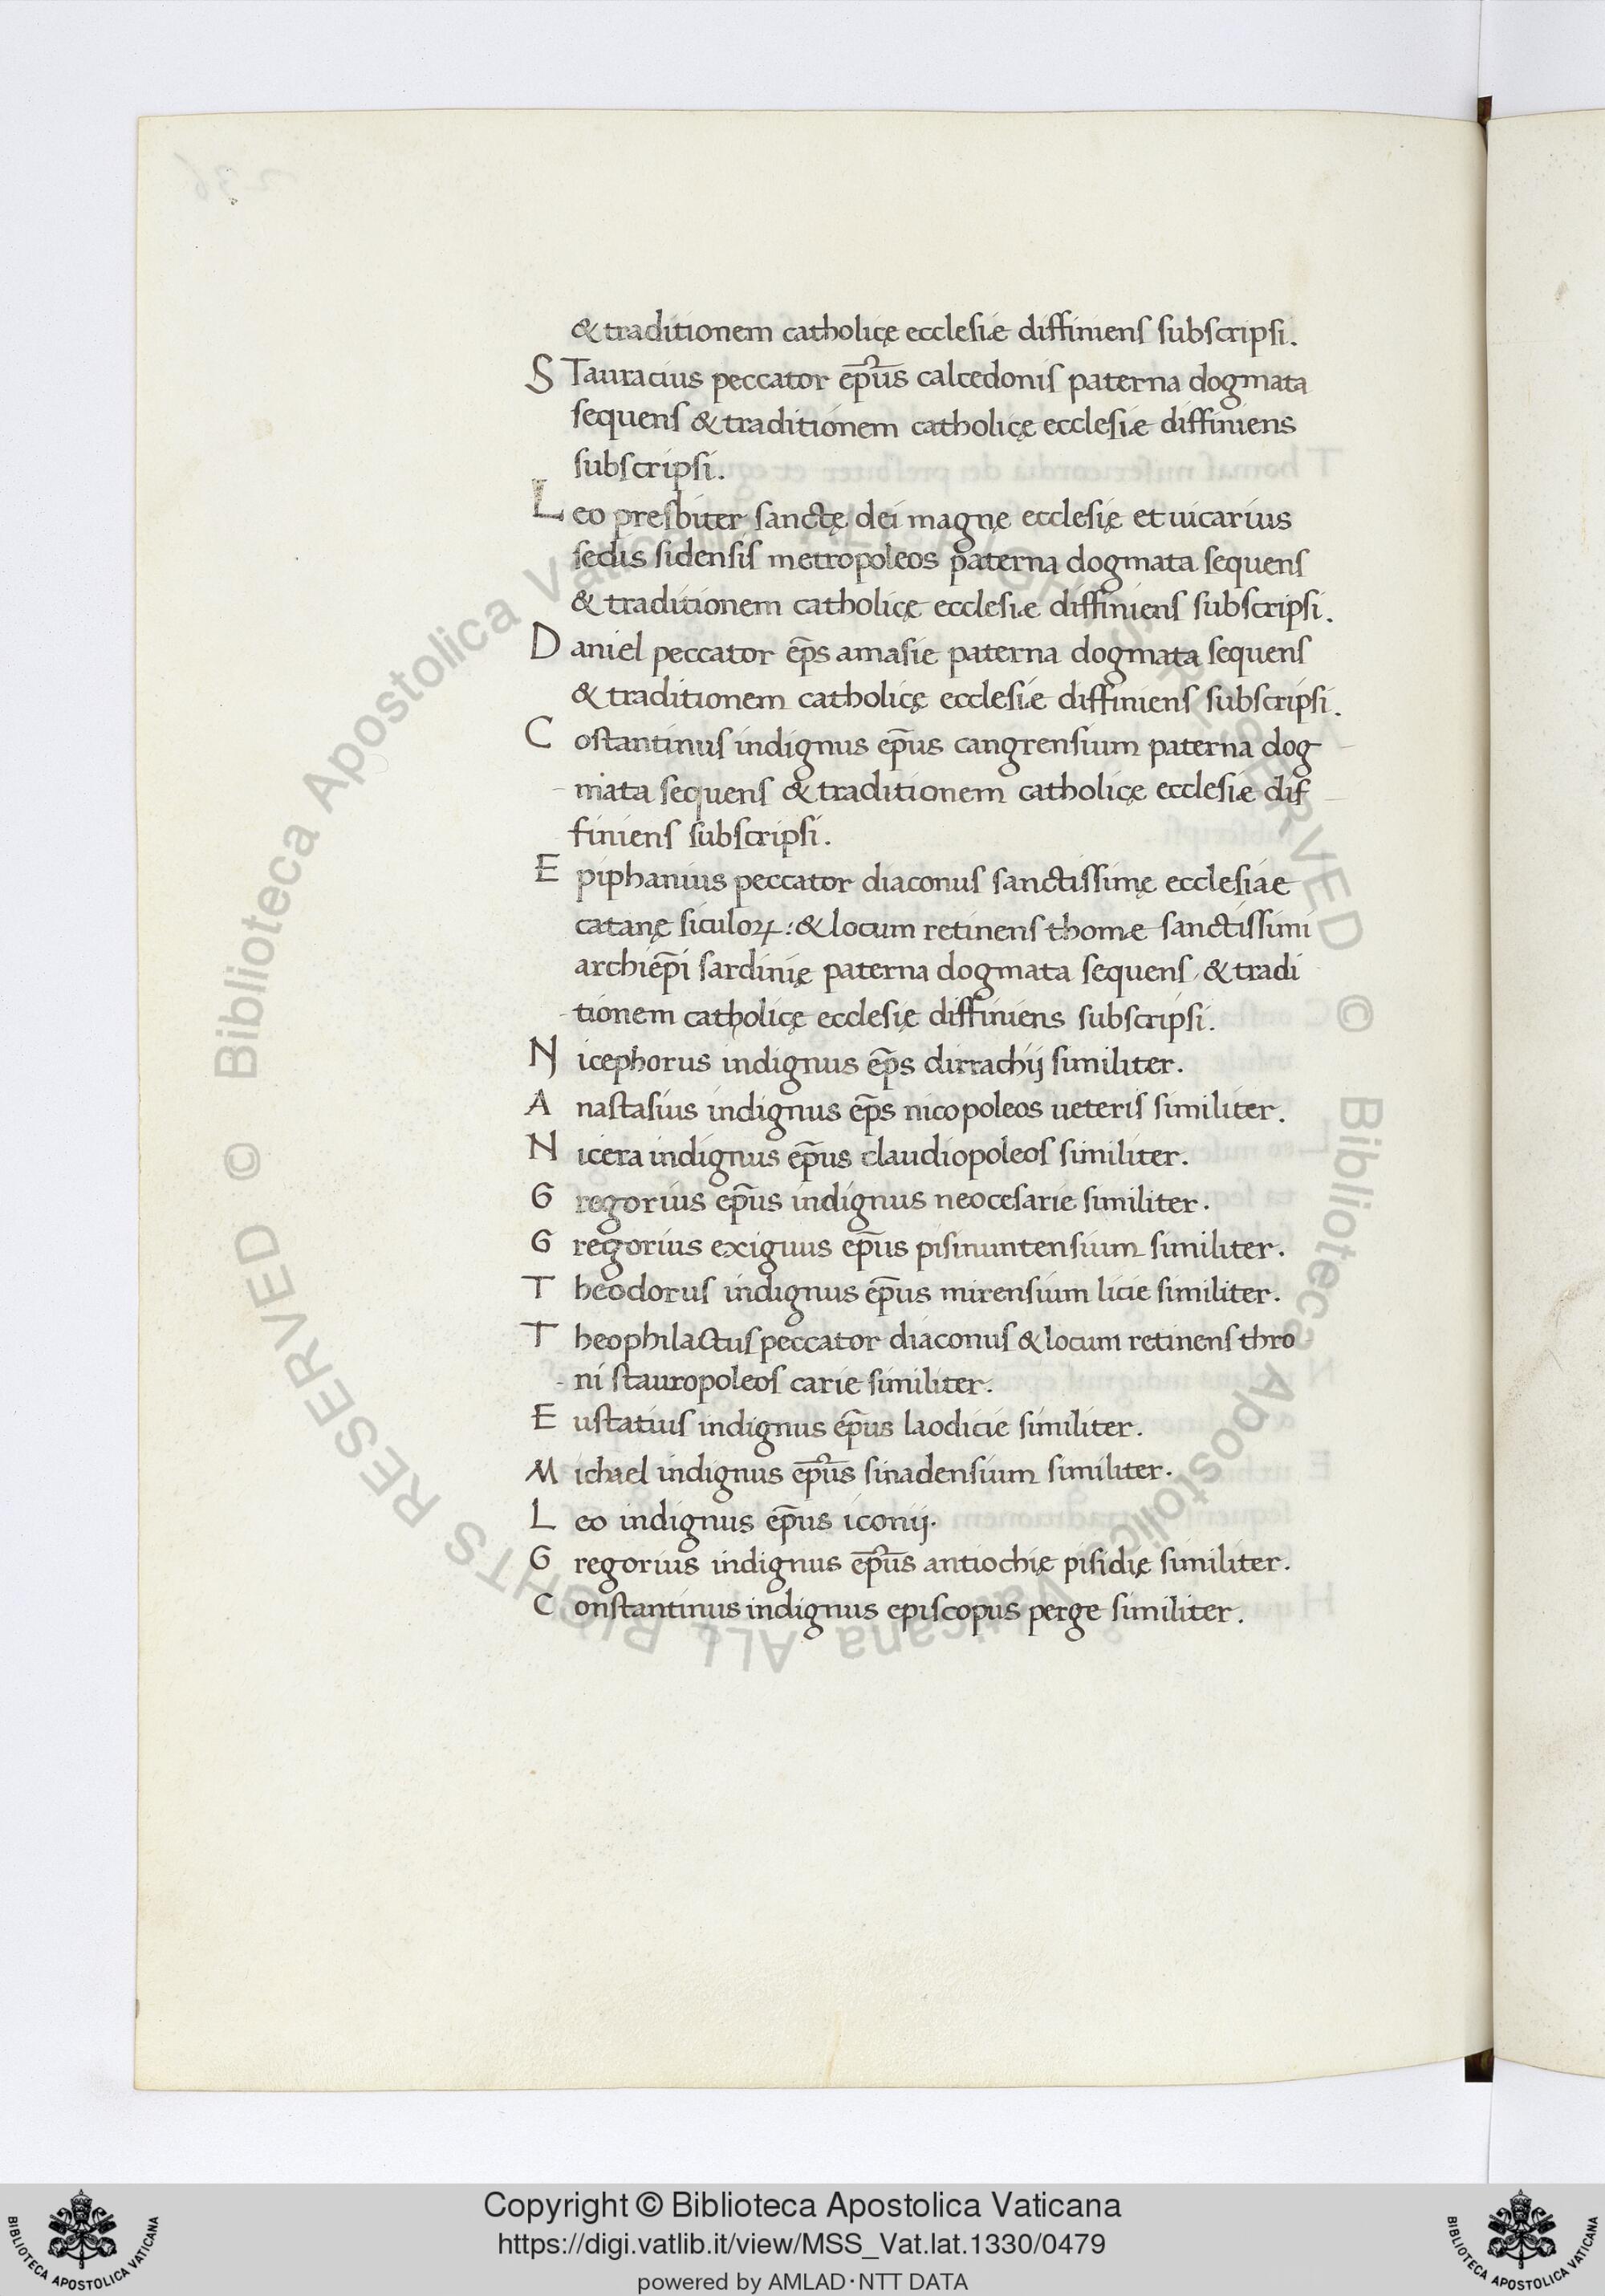 & traditionem catholicę ecclesiæ diffiniens subscripsi.
STauracius peccator ep̅us calcedonis paterna dogmata
sequens & traditionem catholicę ecclesiæ diffiniens
subscripsi.
Leo presbiter sanctę dei magnę ecclesię et uicarius
sedis sidensis metropoleos paterna dogmata sequens
& traditionem catholicę ecclesiæ diffiniens subscripsi.
Daniel peccator ep̅s amasie paterna dogmata sequens
& traditionem catholicę ecclesiæ diffiniens subscripsi.
Costantinus indignus ep̅us cangrensium paterna dog
mata sequens & traditionem catholicę ecclesiæ dif
finiens subscripsi.
Epiphanius peccator diaconus sanctissimę ecclesiae
catanę siculoꝝ: & locum retinens thomæ sanctissimi
archiep̅i sardinię paterna dogmata sequens & tradi
tionem catholicę ecclesię diffiniens subscripsi.
Nicephorus indignus ep̅s dirrachij similiter.
Anastasius indignus ep̅s nicopoleos ueteris similiter.
Nicera indignus ep̅us claudiopoleos similiter.
Gregorius ep̅us indignus neocesarie similiter.
Gregorius exiguus ep̅us pisinuntensium similiter.
Theodorus indignus ep̅us mirensium licie similiter.
Theophilactus peccator diaconus & locum retinens thro
ni stauropoleos carie similiter.
Eustatius indignus ep̅us laodicie similiter.
Michael indignus ep̅us sinadensium similiter.
Leo indignus ep̅us iconij.
Gregorius indignus ep̅us antiochię pisidię similiter.
Constantinus indignus episcopus perge similiter.
© Biblioteca Apostolica Vaticana ALL RIGHTS RESERVED © Biblioteca Apostolica Vaticana ALL RIGHTS RESERVED
Copyright © Biblioteca Apostolica Vaticana
https://digi.vatlib.it/view/MSS_Vat.lat.1330/0479
powered by AMLAD·NTT DATA
BIBLIOTECA APOSTOLICA VATICANA
BIBLIOTECA APOSTOLICA VATICANA